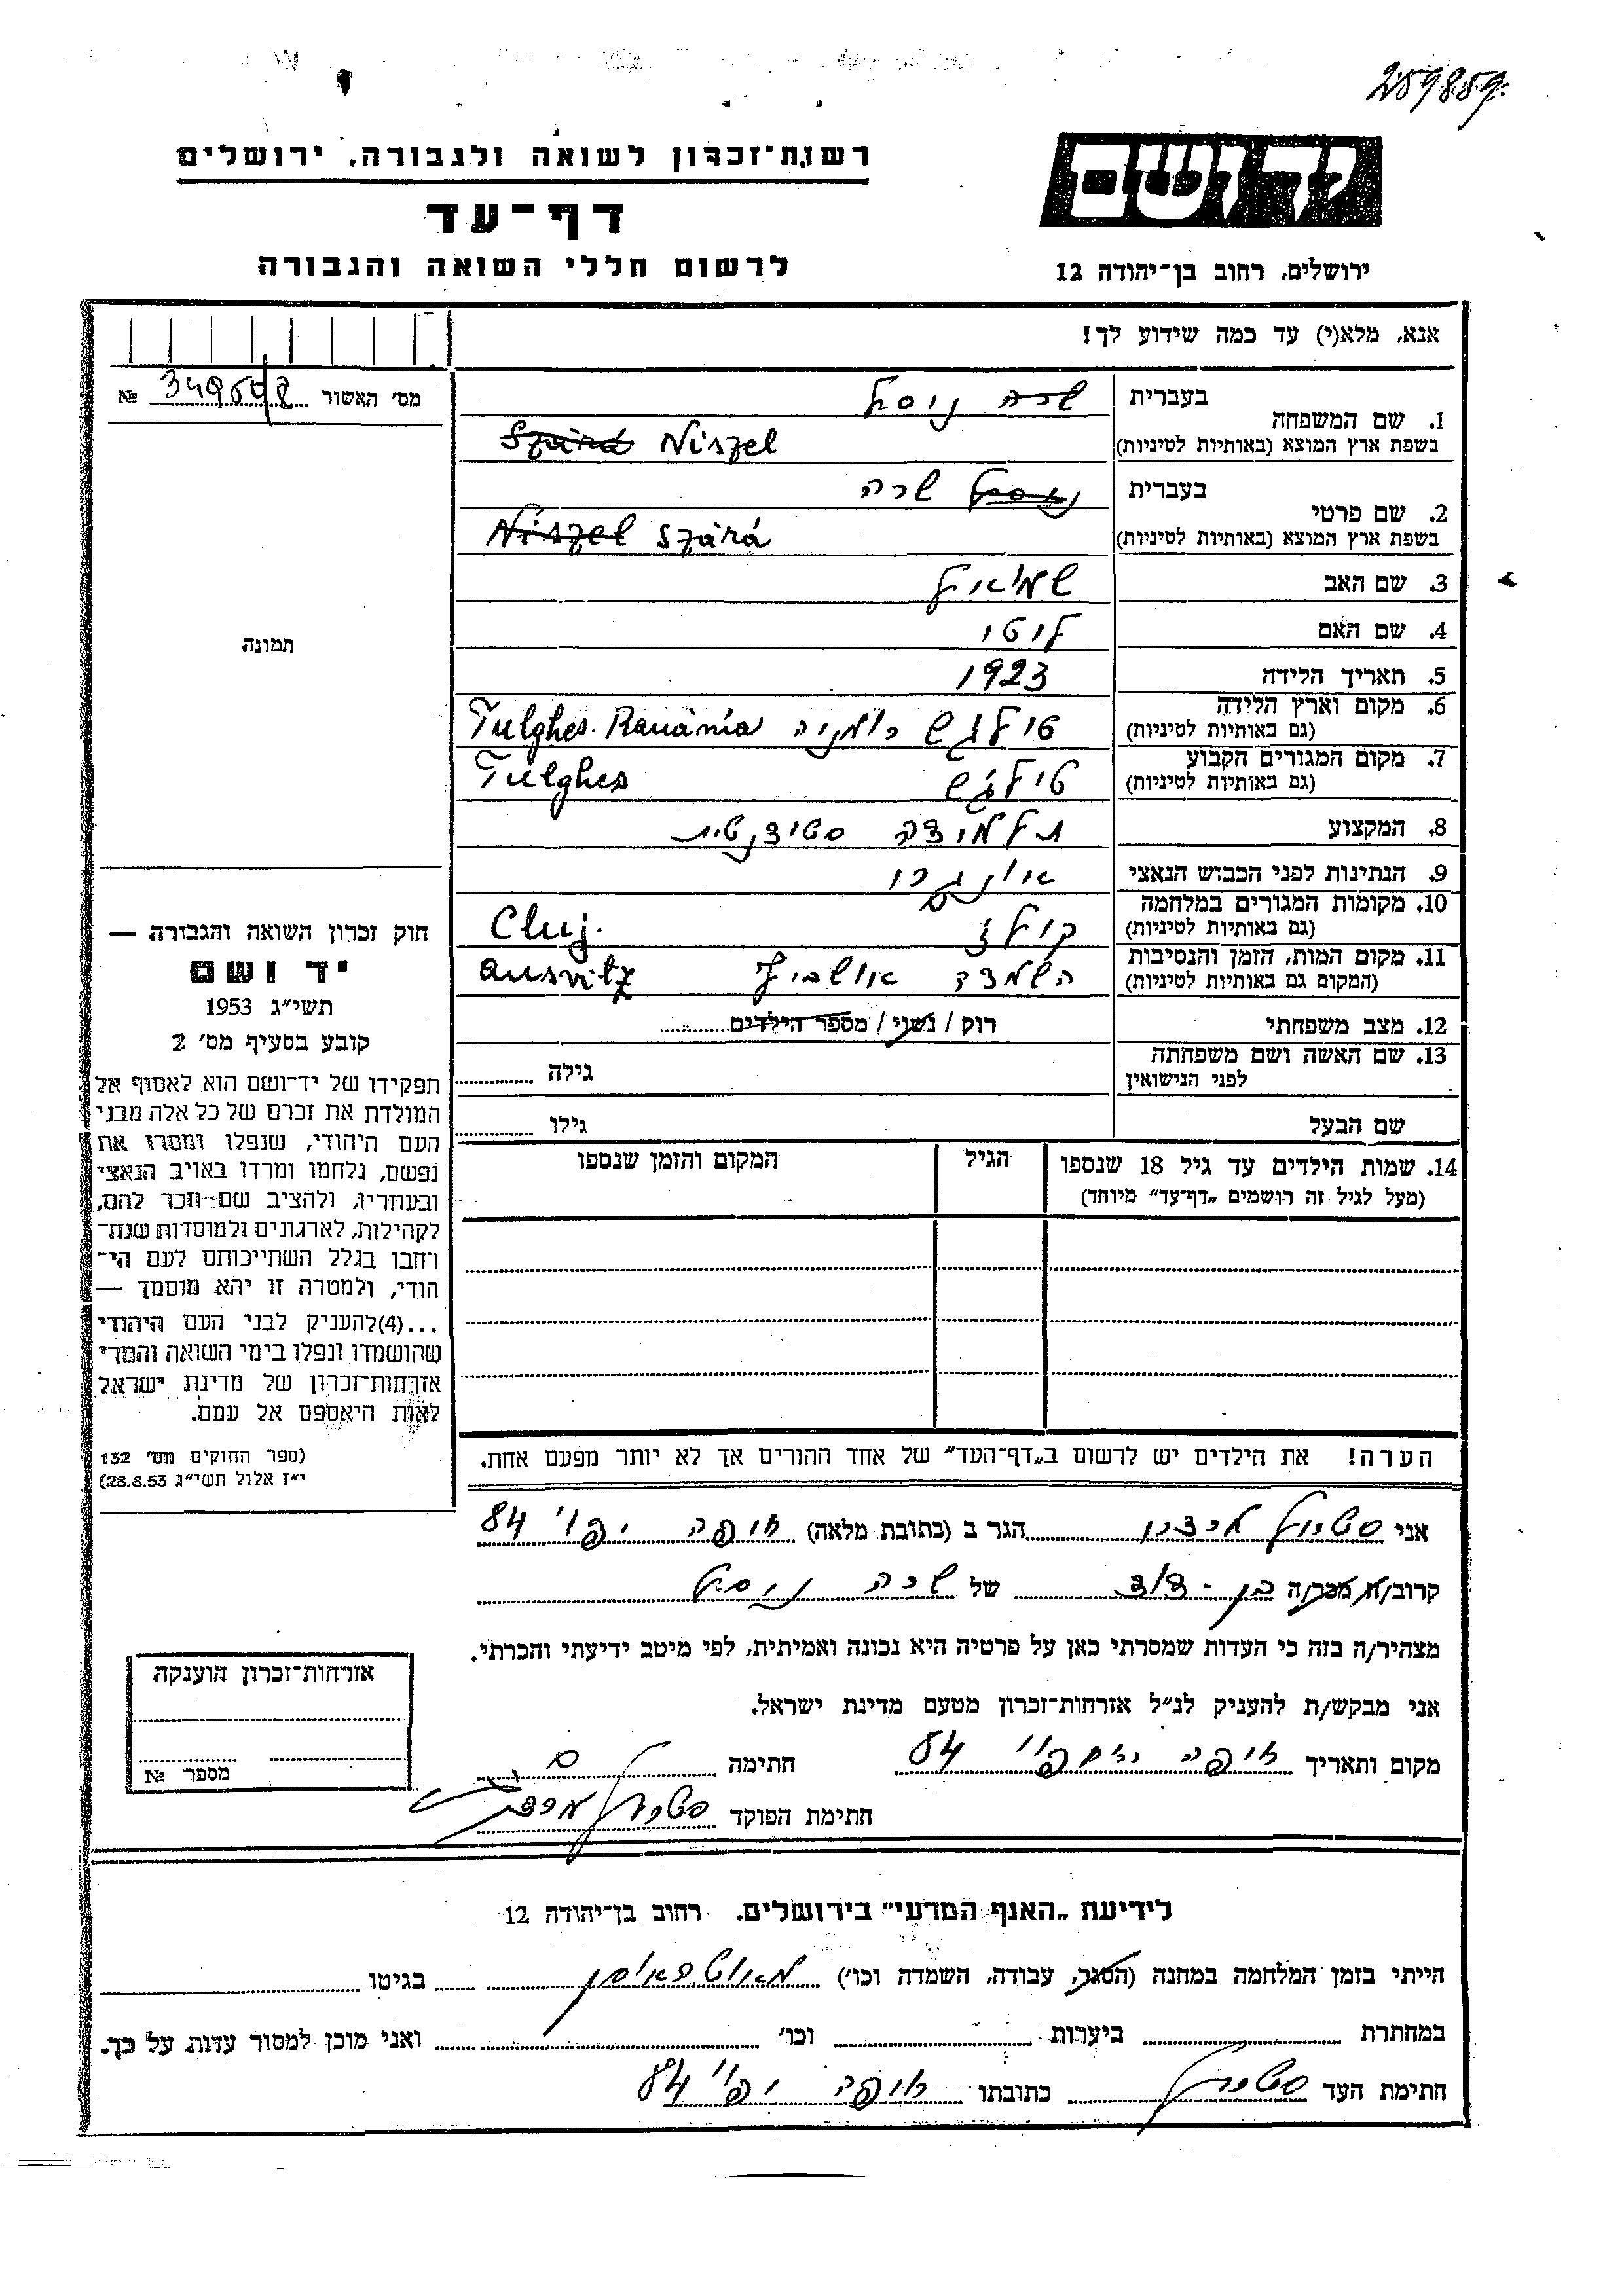 259859
רשות־זכרון לשואה ולגבורה, ירושלים
יד ושם
דף־עד
לרשום חללי השואה והגבורה
ירושלים, רחוב בן־יהודה 12
אנא, מלא(י) עד כמה שידוע לך!
מס׳ האשור № 349502
1. שם המשפחה
בעברית שרה ניסל
בשפת ארץ המוצא (באותיות לטיניות) Szárá Niszel
2. שם פרטי
בעברית ניסל שרה
בשפת ארץ המוצא (באותיות לטיניות) Niszel Szárá
3. שם האב שמואל
4. שם האם לוטי
5. תאריך הלידה 1923
6. מקום וארץ הלידה (גם באותיות לטיניות) טולגש רומניה Tulghes. Románia
7. מקום המגורים הקבוע (גם באותיות לטיניות) טולגש Tulghes
8. המקצוע תלמידה סטודנטית
9. הנתינות לפני הכבוש הנאצי
10. מקומות המגורים במלחמה (גם באותיות לטיניות) קולז Cluj.
11. מקום המות, הזמן והנסיבות (המקום גם באותיות לטיניות) השמדה אושביץ Ausvitz
12. מצב משפחתי רוק / נשוי / מספר הילדים
13. שם האשה ושם משפחתה לפני הנישואין גילה
שם הבעל גילו
14. שמות הילדים עד גיל 18 שנספו (מעל לגיל זה רושמים „דף־עד״ מיוחד)
הגיל
המקום והזמן שנספו
תמונה
חוק זכרון השואה והגבורה —
יד ושם
תשי״ג 1953
קובע בסעיף מס׳ 2
תפקידו של יד־ושם הוא לאסוף אל
המולדת את זכרם של כל אלה מבני
העם היהודי, שנפלו ומסרו את
נפשם, נלחמו ומרדו באויב הנאצי
ובעוזריו, ולהציב שם וזכר להם,
לקהילות, לארגונים ולמוסדות שנח־
רחבו בגלל השתייכותם לעם הי־
הודי, ולמטרה זו יהא מוסמך —
...(4)להעניק לבני העם היהודי
שהושמדו ונפלו בימי השואה והמרי
אזרחות־זכרון של מדינת ישראל
לאות היאספם אל עמם.
(ספר החוקים מס׳ 132
י״ז אלול תשי״ג 28.8.53)
הערה! את הילדים יש לרשום ב„דף־העד״ של אחד ההורים אך לא יותר מפעם אחת.
אני הגר ב (כתובת מלאה) חיפה יפו 84
קרוב/ה מכר/ה בן-דוד של שרה ניסל
מצהיר/ה בזה כי העדות שמסרתי כאן על פרטיה היא נכונה ואמיתית, לפי מיטב ידיעתי והכרתי.
אני מבקש/ת להעניק לנ״ל אזרחות־זכרון מטעם מדינת ישראל.
מקום ותאריך חיפה 84 חתימה
חתימת הפוקד
אזרחות־זכרון הוענקה
מספר №
לידיעת „האגף המדעי״ בירושלים. רחוב בן־יהודה 12
הייתי בזמן המלחמה במחנה (הסגר, עבודה, השמדה וכו׳) מאוטהאוסן בגיטו
במחתרת ביערות וכו׳ ואני מוכן למסור עדות על כך.
חתימת העד כתובתו חיפה יפו 84